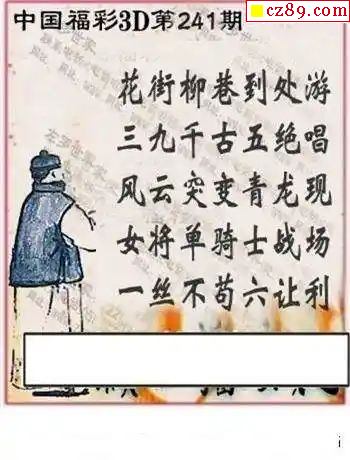 cz89.com
中国福彩3D第241期
花街柳巷到处游
三九千古五绝唱
风云突变青龙现
女将单骑士战场
一丝不苟六让利
i